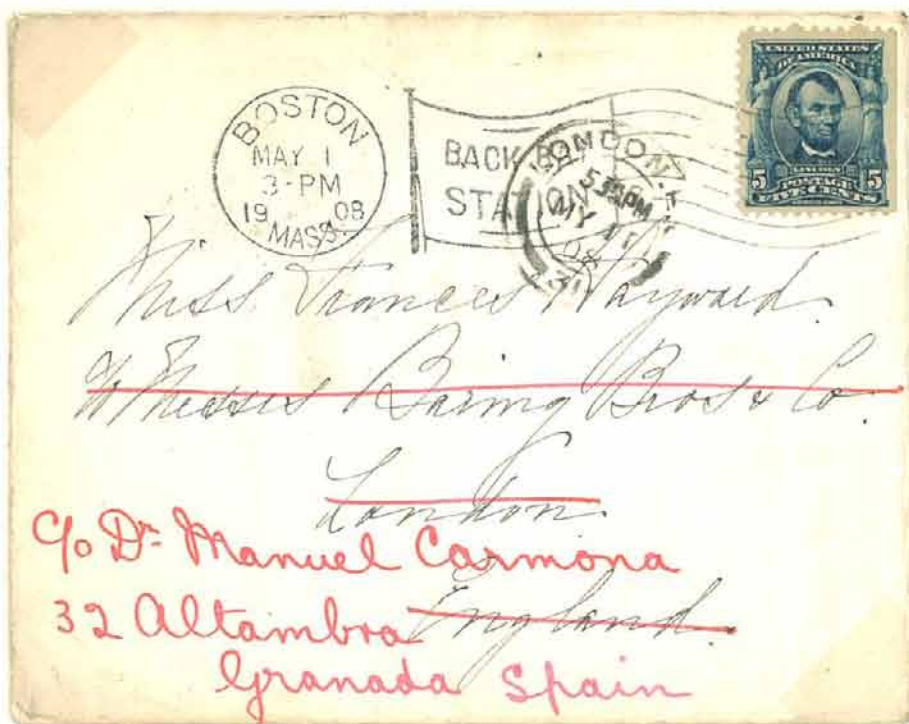 BOSTON
MAY 1
3-PM
19 08
MASS.
BACK BAY
STATION
LONDON
MY 11
08
UNITED STATES
OF AMERICA
LINCOLN
5 POSTAGE 5
FIVE CENTS
Miss Frances Hayward.
c/o Messrs Baring Bros & Co.
London.
England.
C/o Dr. Manuel Carmona
32 Altambra
Granada Spain